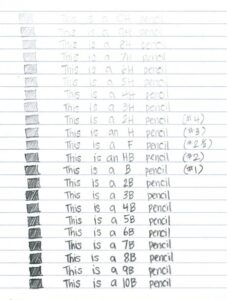 This is a pencil
This is a 9H pencil
This is a 8H pencil
This is a 7H pencil
This is a 6H pencil
This is a 5H pencil
This is a 4H pencil
This is a 3H pencil
This is a 2H pencil (#4)
This is an H pencil (#3)
This is a F pencil (#2½)
This is an HB pencil (#2)
This is a B pencil (#1)
This is a 2B pencil
This is a 3B pencil
This is a 4B pencil
This is a 5B pencil
This is a 6B pencil
This is a 7B pencil
This is a 8B pencil
This is a 9B pencil
This is a 10B pencil